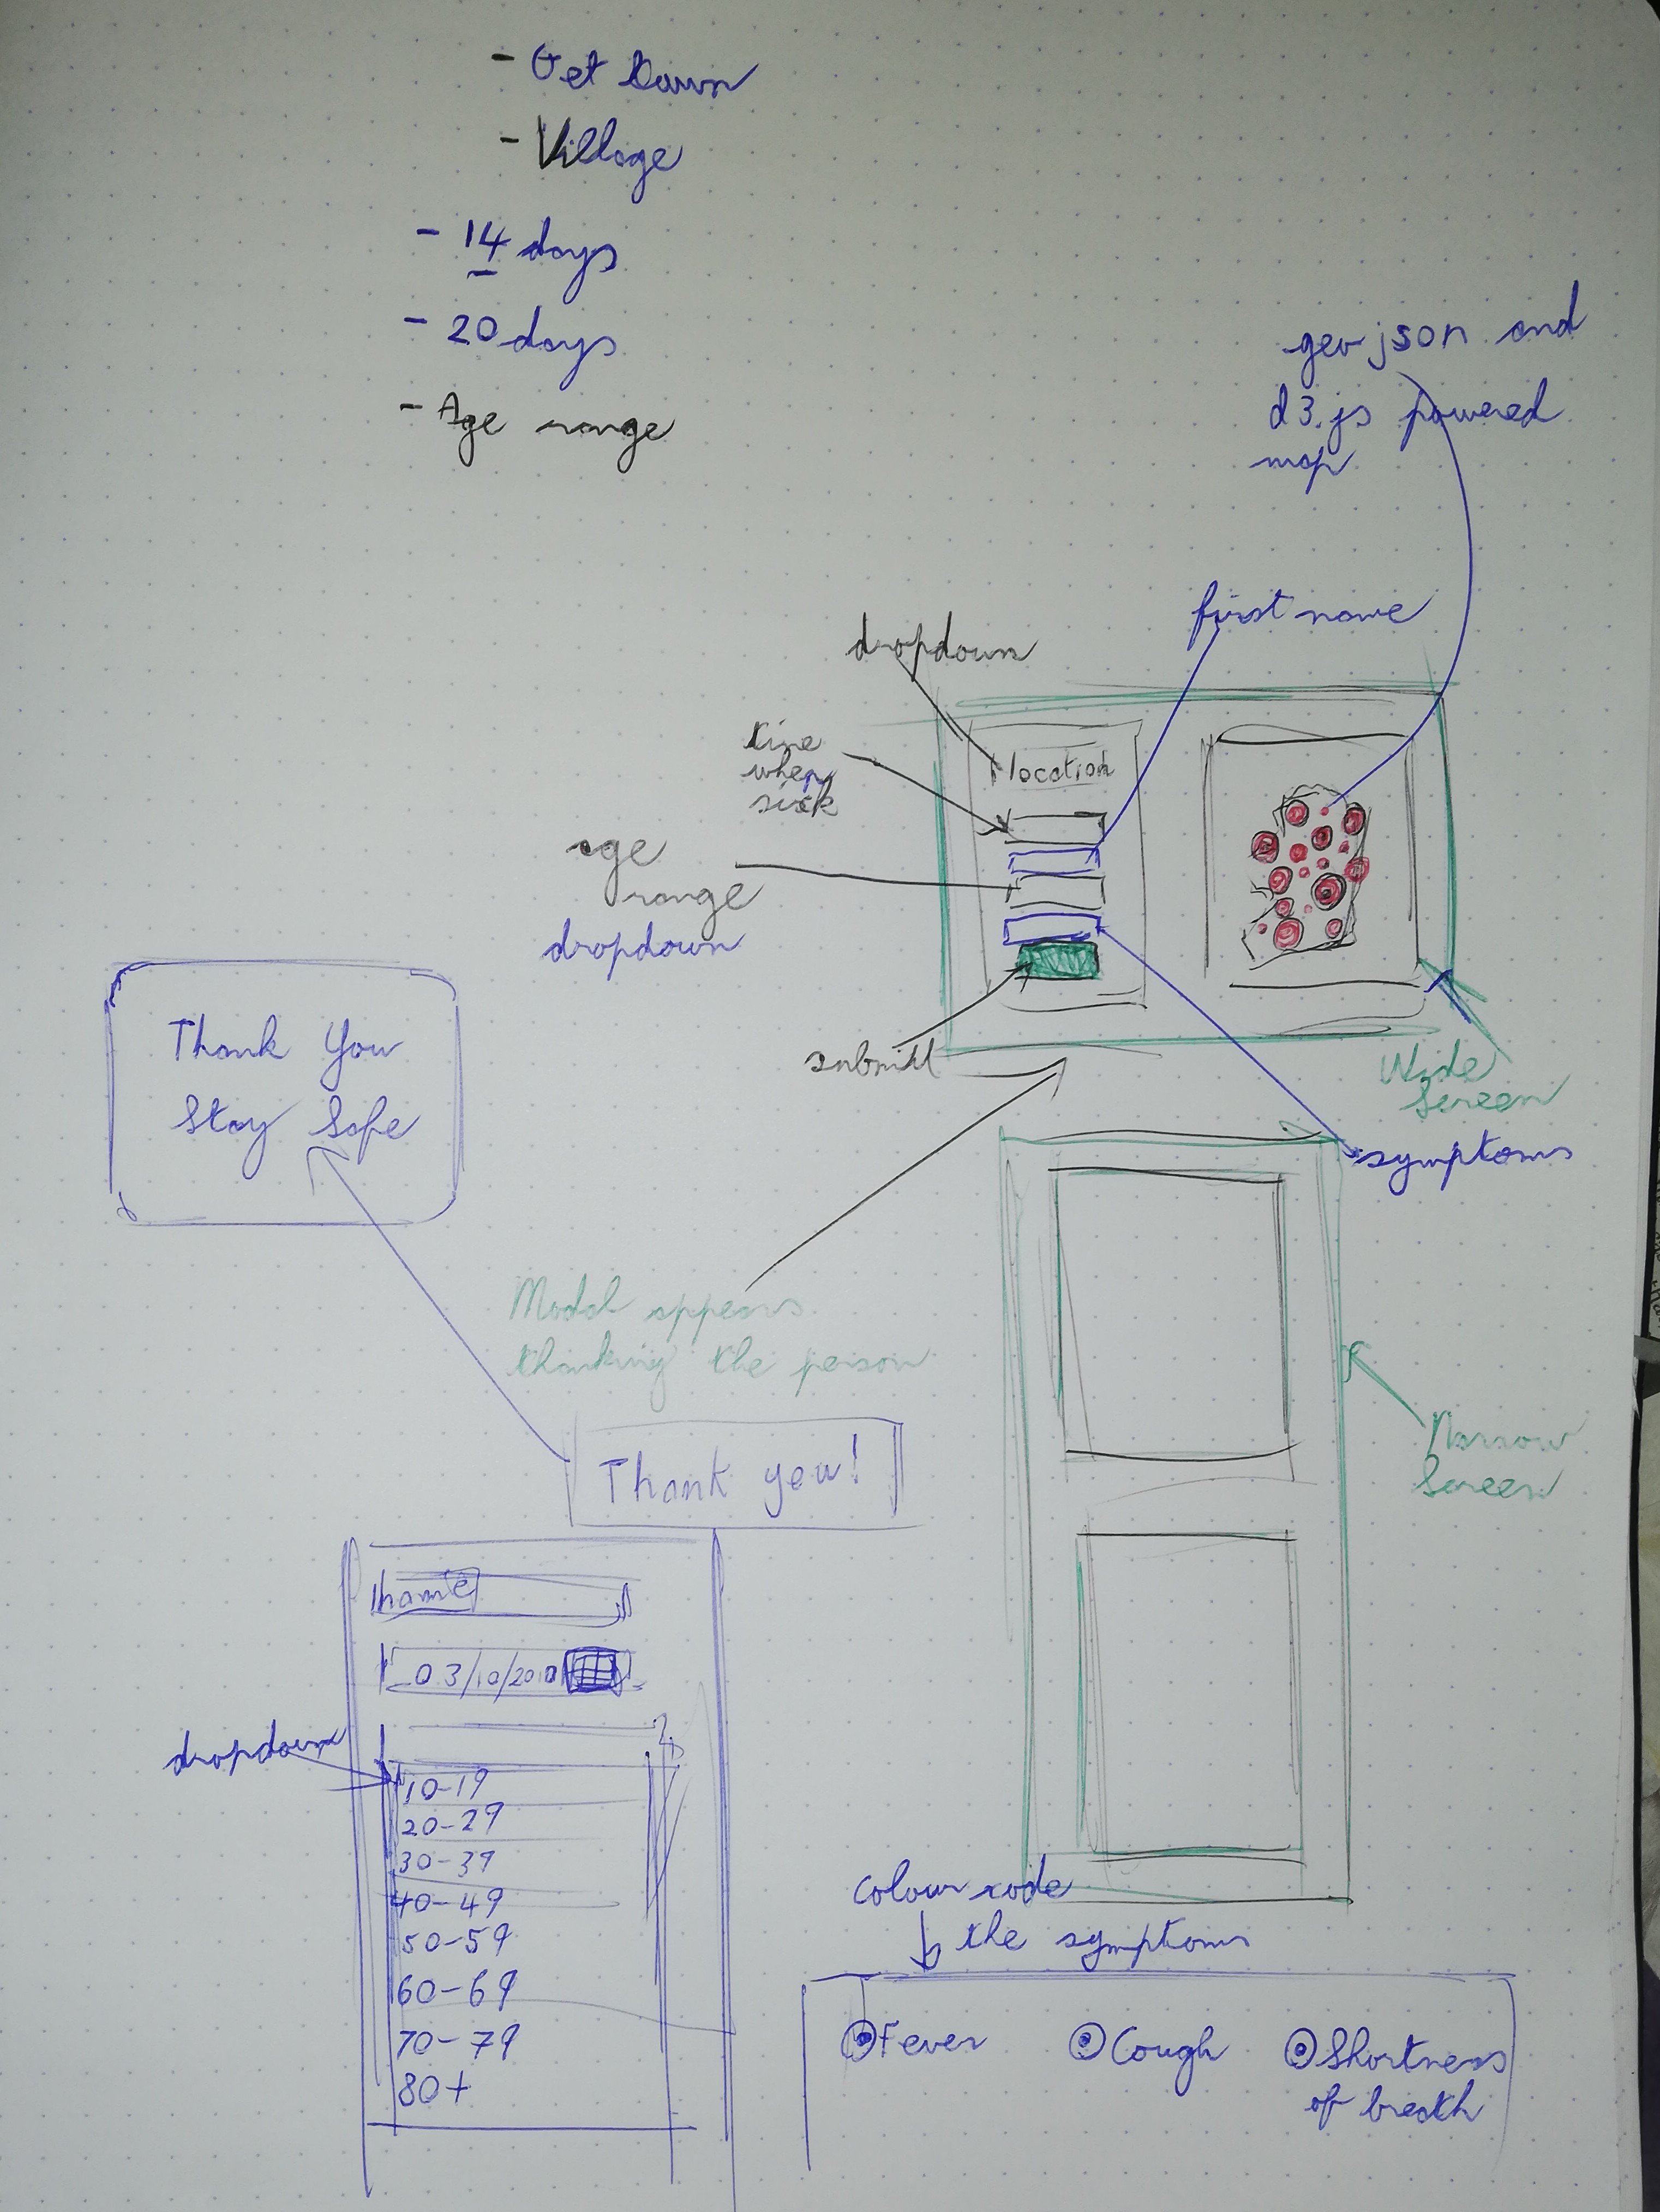 - Get Town
- Village
- 14 days
- 20 days
- Age range
geojson and
d3.js powered
map
first name
dropdown
time
when
sick
location
age
range
dropdown
submit
Wide
Screen
symptoms
Thank You
Stay Safe
Modal appears
thanking the person
Thank you!
Narrow
Screen
name
03/10/2010
dropdown
10-19
20-29
30-39
40-49
50-59
60-69
70-79
80+
Colour code
the symptoms
Fever
Cough
Shortness
of breath